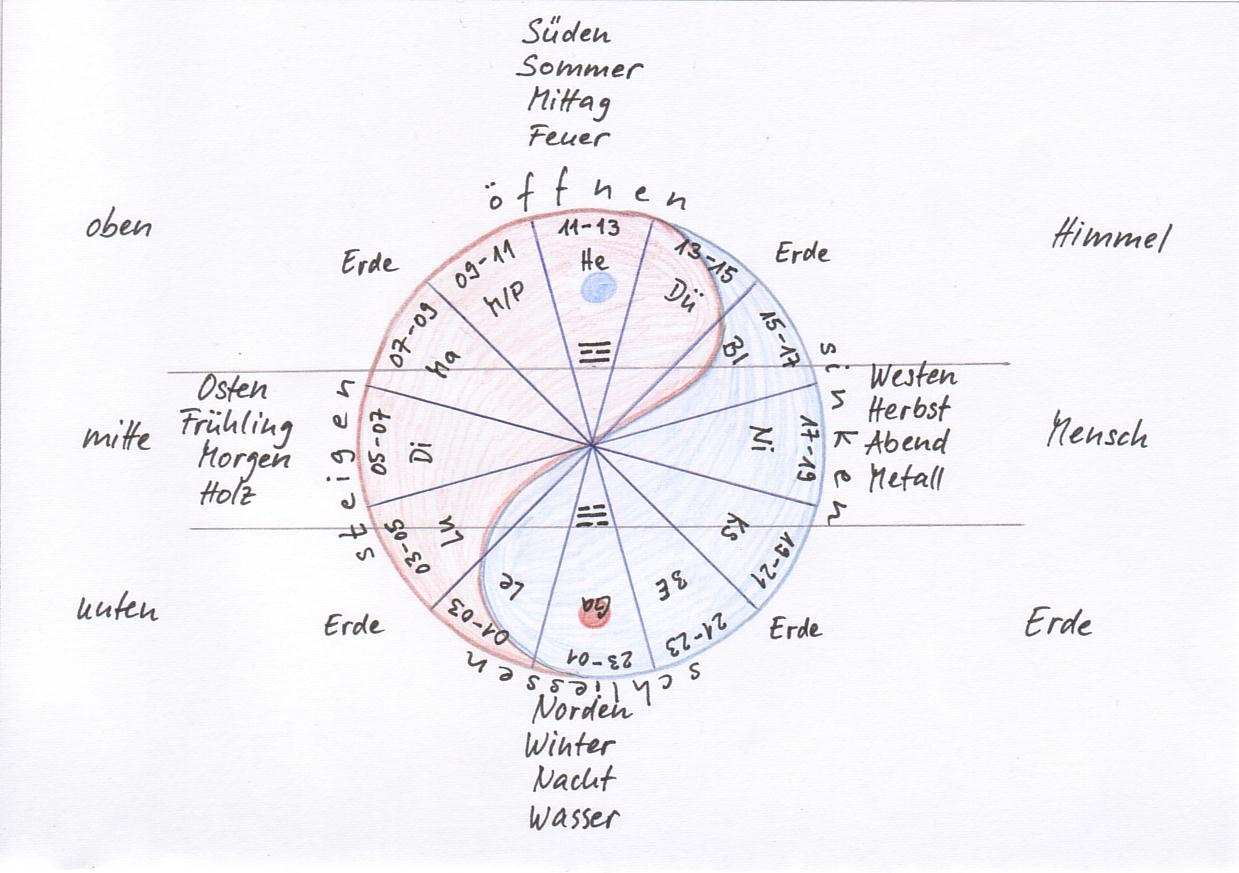 Süden
Sommer
Mittag
Feuer
öffnen
oben
Himmel
Erde
Erde
09-11
11-13
13-15
M/P
He
Dü
07-09
Ma
15-17
Bl
☲
sinken
Osten
Frühling
Morgen
Holz
Westen
Herbst
Abend
Metall
mitte
Mensch
steigen
05-07
Di
17-19
Ni
03-05
Lu
19-21
KS
☵
unten
Erde
Erde
Erde
01-03
Le
23-01
Ga
21-23
3E
schliessen
Norden
Winter
Nacht
Wasser